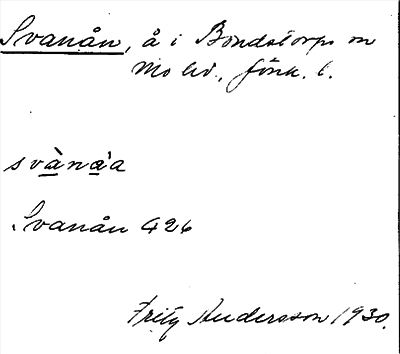 Svanån, å i Bondstorps o
Mo hd., Jönk. l.
svànáa
Svanån 426
Fritz Andersson 1930.